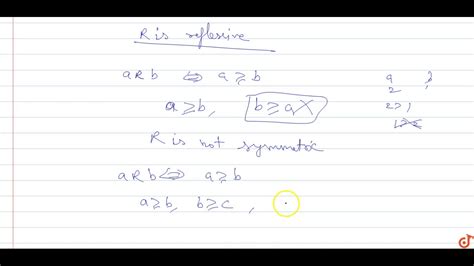 R is reflexive
a R b ⇔ a ≥ b
a ≥ b, b ≥ a X
a b
2 1
2 ≥ 1
1 ≥ 2
R is not symmetric
a R b ⇔ a ≥ b
a ≥ b, b ≥ c ,